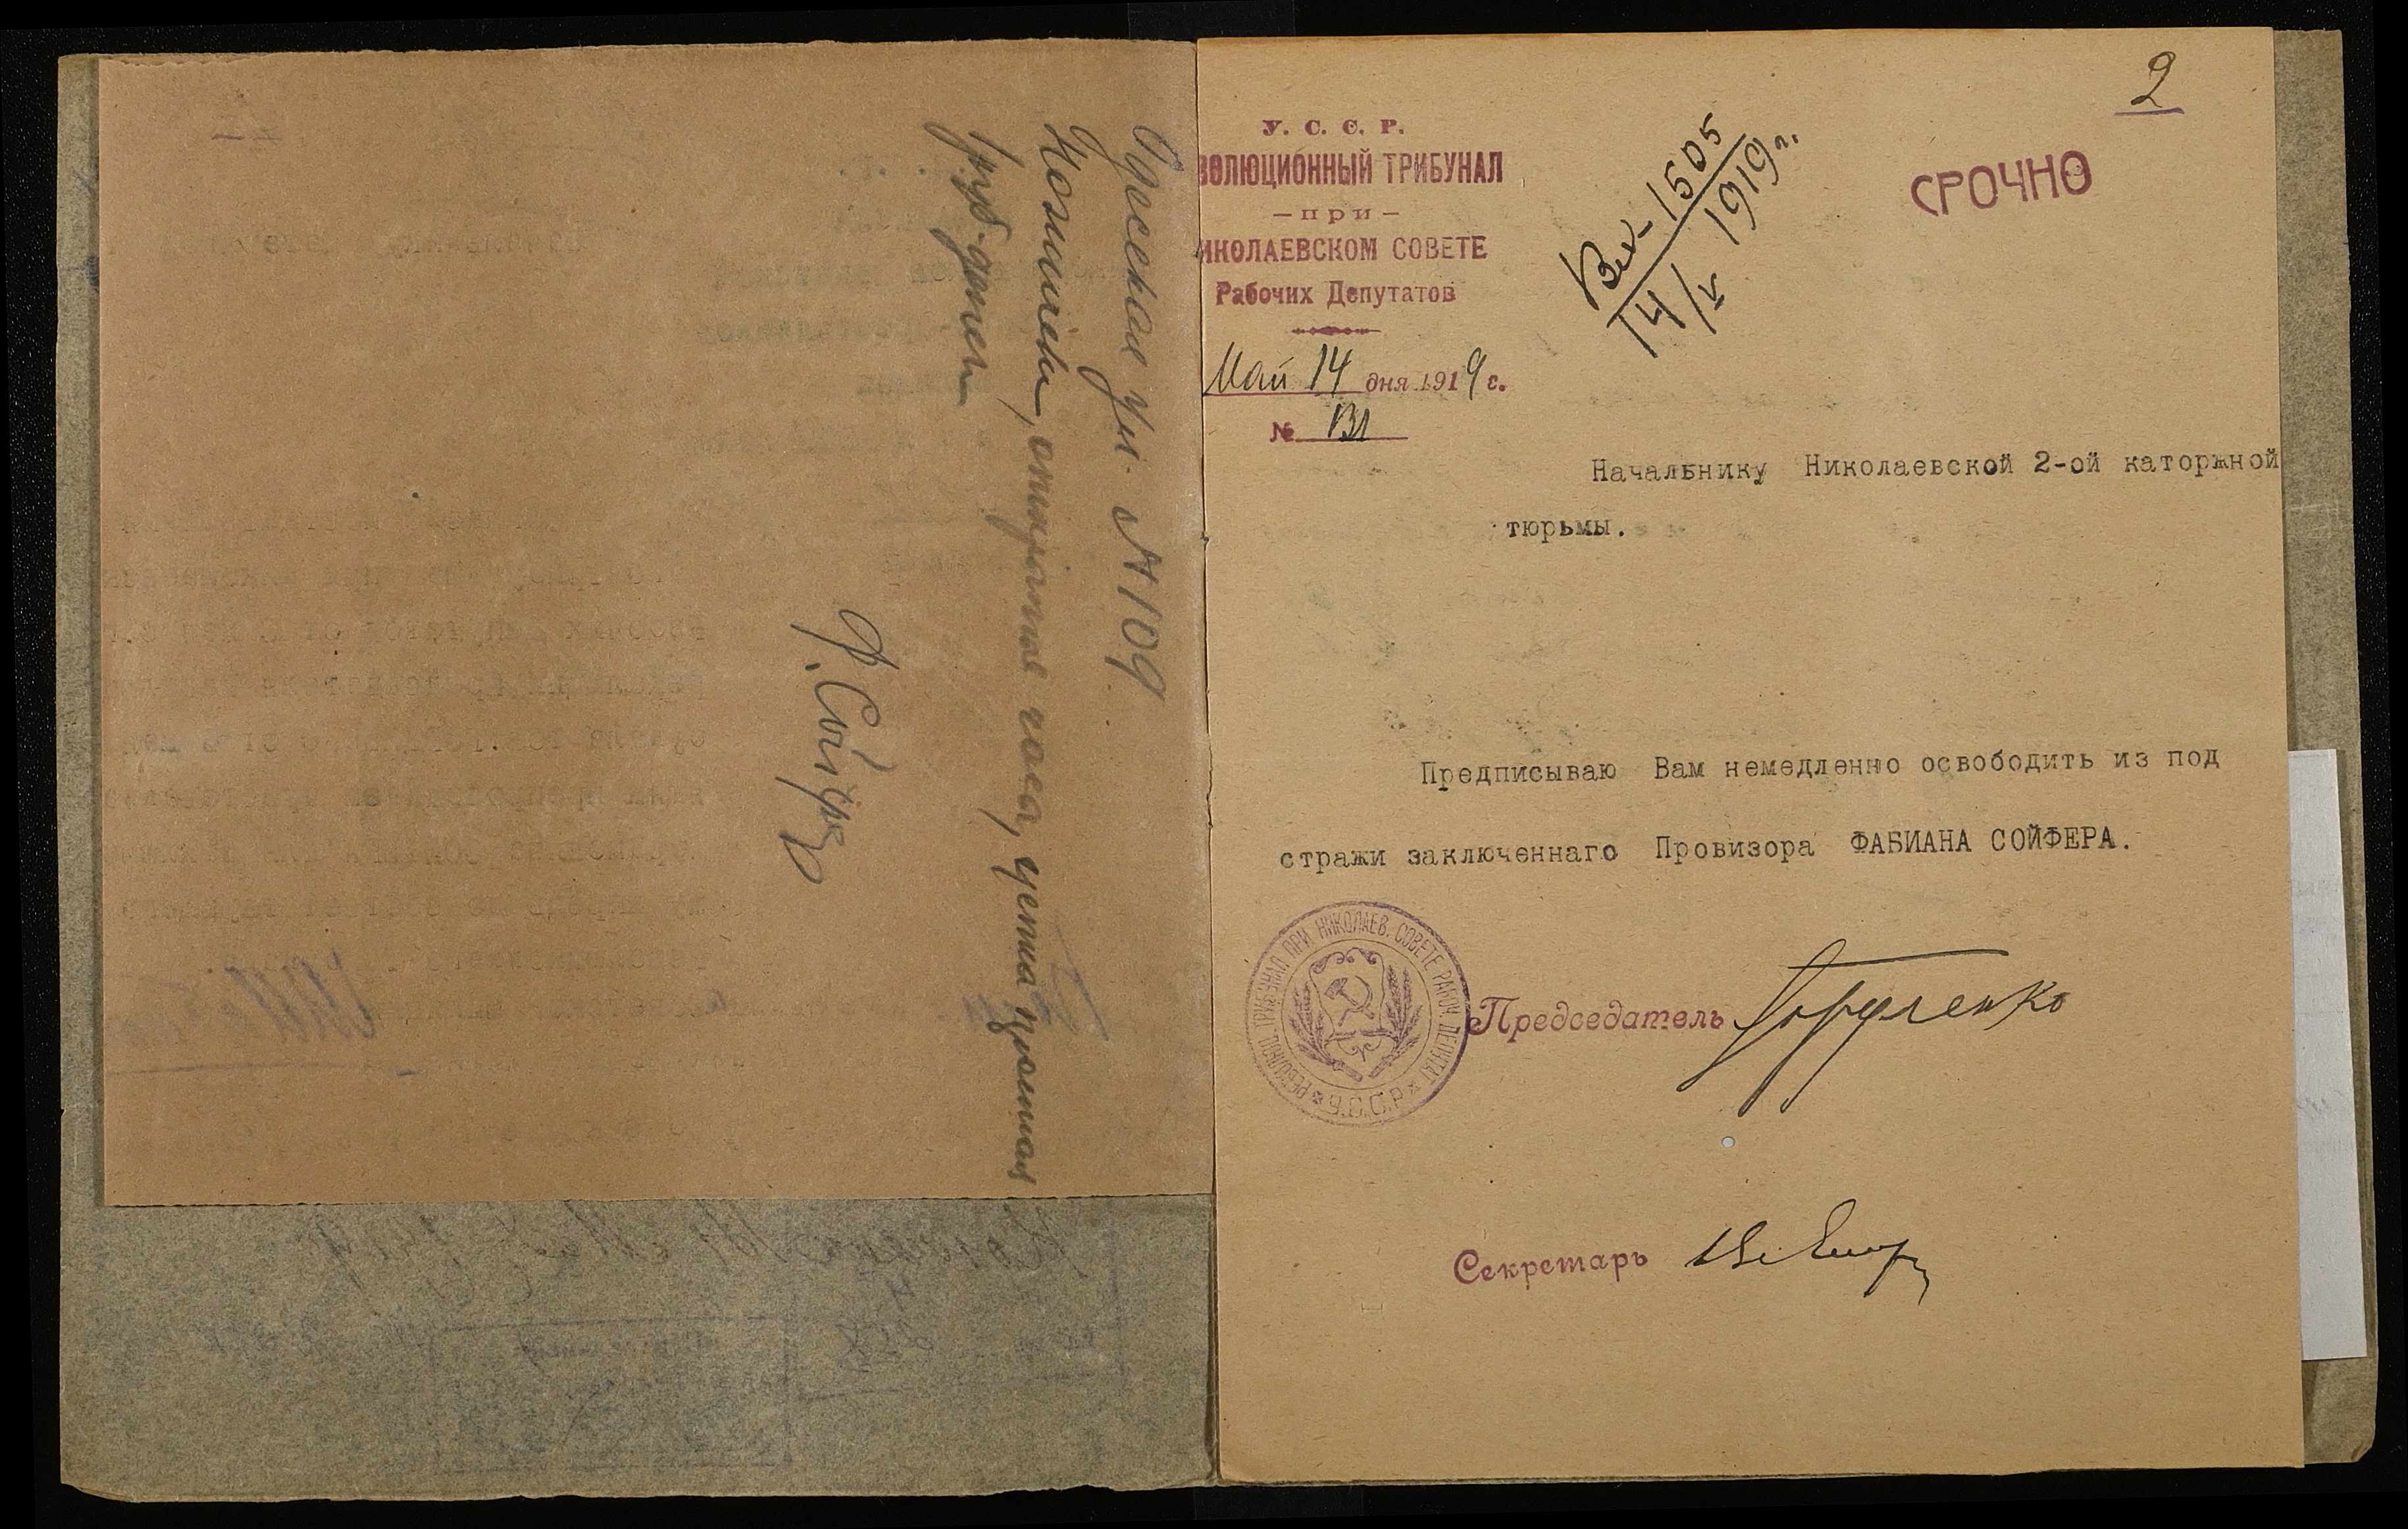 Одесская ул. № 109
Кошилек, открытые часы, цепка простая
руб. денег
Ф. Сойфер
2
У. С. С. Р.
ВОЛЮЦИОННЫЙ ТРИБУНАЛ
— при —
ИКОЛАЕВСКОМ СОВЕТЕ
Рабочих Депутатов
Май 14 дня 1919 г.
№
Вх. 1505
14/V 1919 г.
СРОЧНО
Начальнику Николаевской 2-ой каторжной
тюрьмы.
Предписываю Вам немедленно освободить из под
стражи заключеннаго Провизора ФАБИАНА СОЙФЕРА.
РЕВОЛЮЦ. ТРИБУНАЛ ПРИ НИКОЛАЕВ. СОВЕТЕ РАБОЧ. ДЕПУТАТ. У.С.С.Р.
Председатель
Секретарь